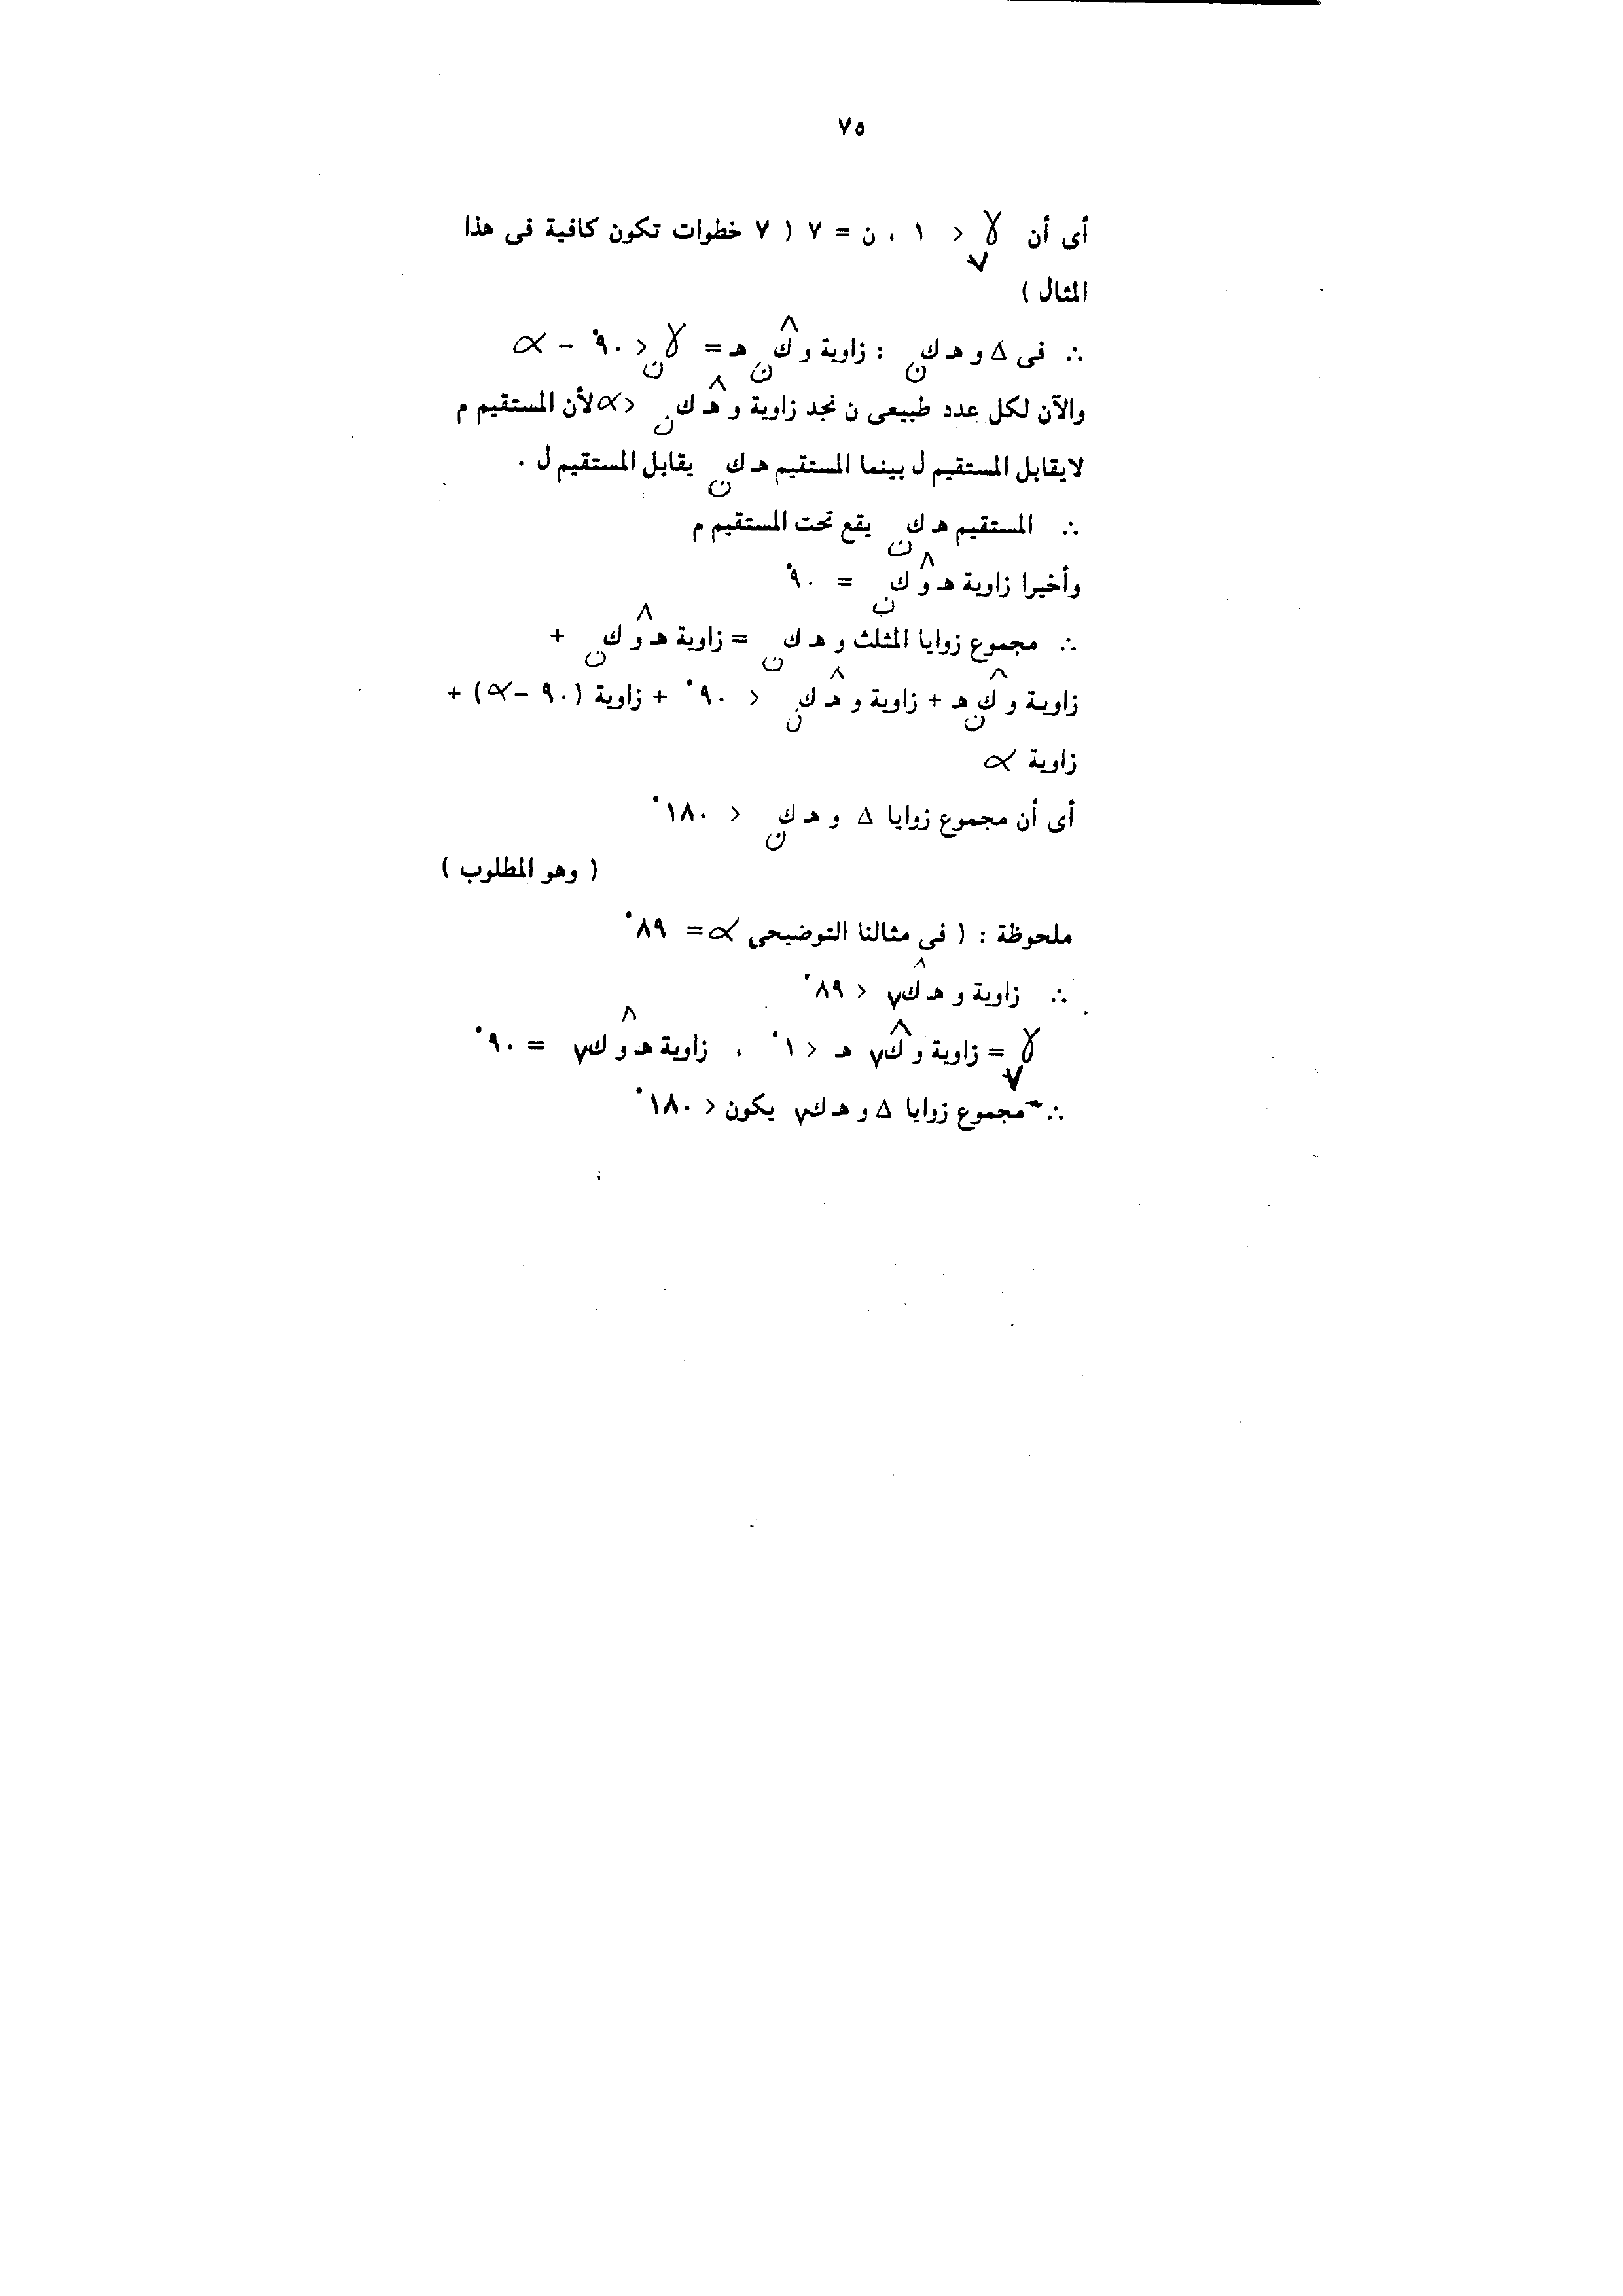 ٧٥
أى أن γ٧ < ١ ، ن = ٧ ( ٧ خطوات تكون كافية فى هذا
المثال )
∴ فى Δ و هـ كن : زاوية و ك̂ن هـ = γن < ٩٠° − α
والآن لكل عدد طبيعى ن نجد زاوية و هـ̂ كن < α لأن المستقيم م
لايقابل المستقيم ل بينما المستقيم هـ كن يقابل المستقيم ل .
∴ المستقيم هـ كن يقع تحت المستقيم م
وأخيرا زاوية هـ و̂ كن = ٩٠°
∴ مجموع زوايا المثلث و هـ كن = زاوية هـ و̂ كن +
زاوية و ك̂ن هـ + زاوية و هـ̂ كن < ٩٠° + زاوية (٩٠ − α) +
زاوية α
أى أن مجموع زوايا Δ و هـ كن < ١٨٠°
( وهو المطلوب )
ملحوظة : ( فى مثالنا التوضيحى α = ٨٩°
∴ زاوية و هـ̂ ك٧ < ٨٩°
γ٧ = زاوية و ك̂٧ هـ < ١° ، زاوية هـ و̂ ك٧ = ٩٠°
∴ مجموع زوايا Δ و هـ ك٧ يكون < ١٨٠°